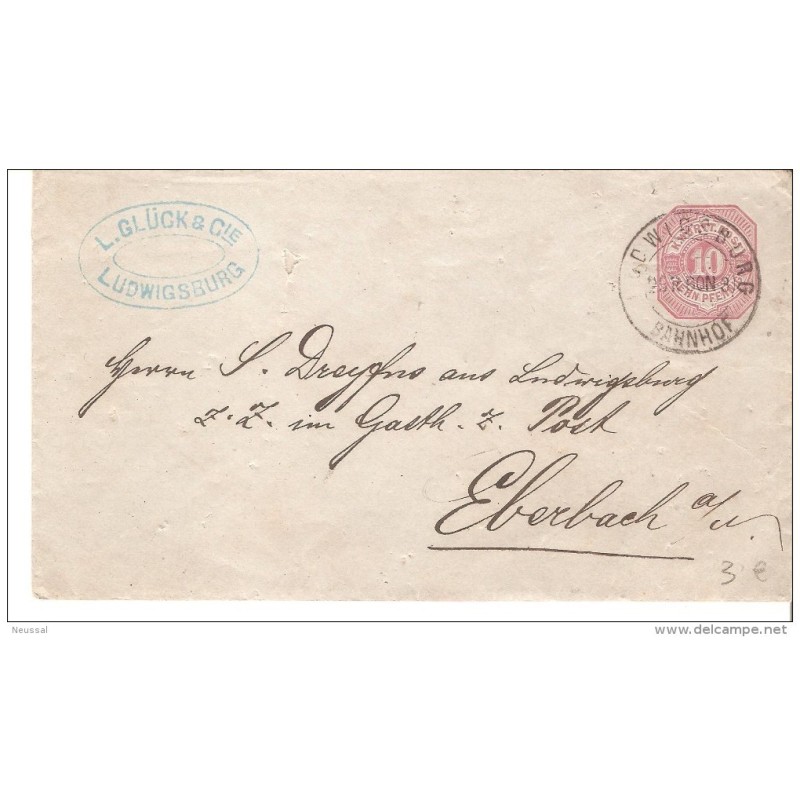 L. GLÜCK & CIE
LUDWIGSBURG
LUDWIGSBURG
BAHNHOF
10
ZEHN PFENNIG
Herrn S. Dreyfus aus Ludwigsburg
z. Z. im Gasth. z. Post
Eberbach a/N.
3 €
Neussal
www.delcampe.net